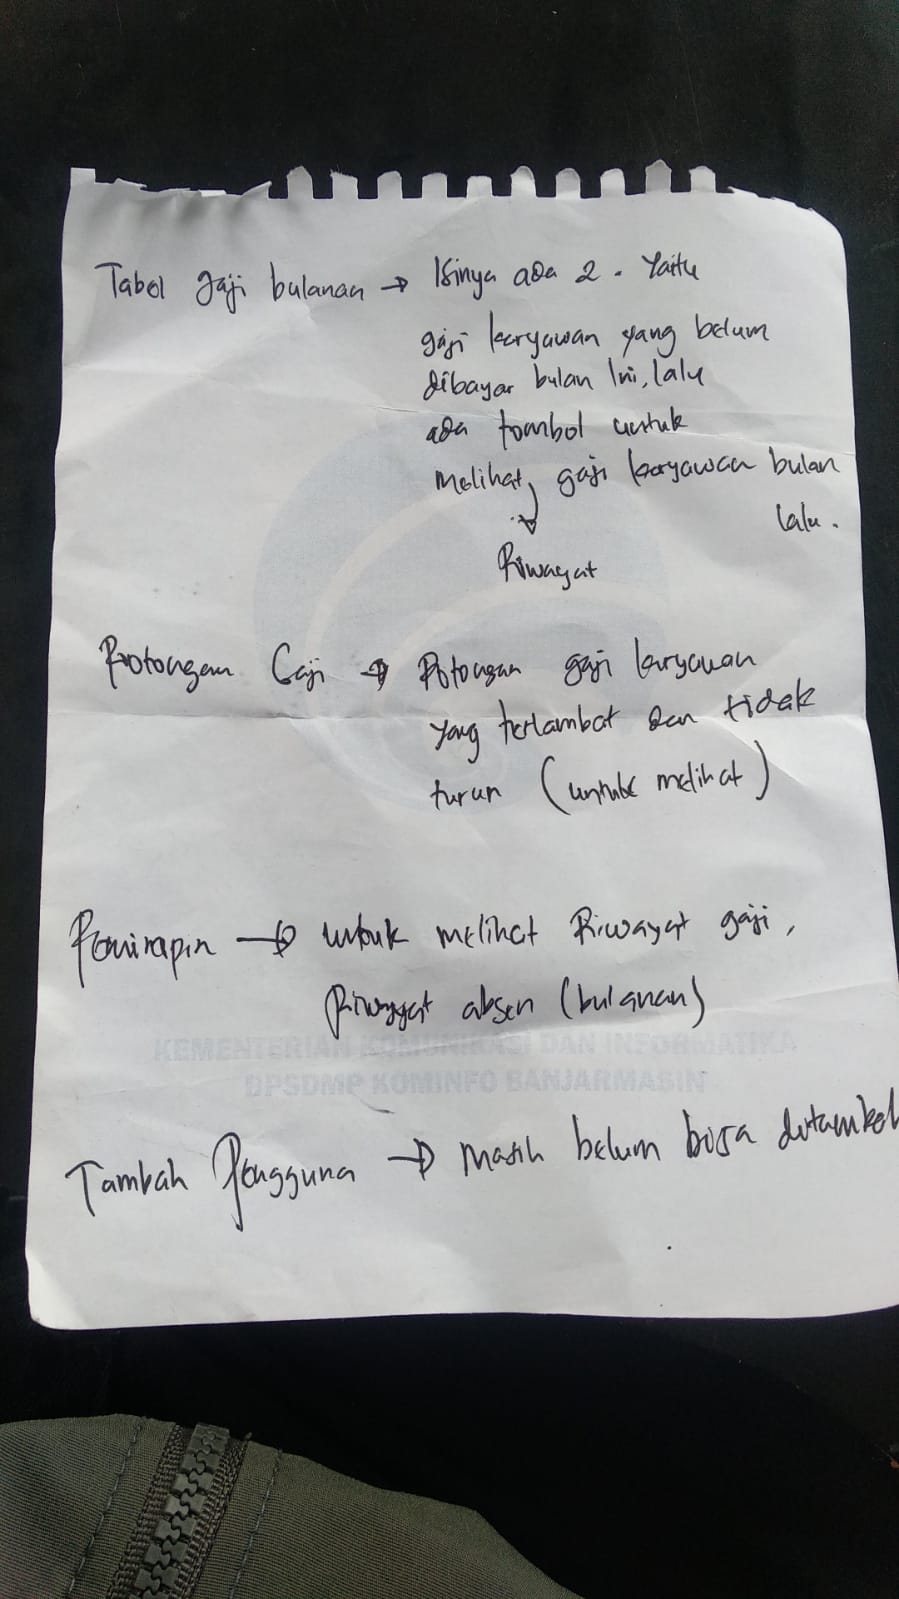 Tabel gaji bulanan → Isinya ada 2. Yaitu
gaji karyawan yang belum
dibayar bulan Ini, lalu
ada tombol untuk
melihat gaji karyawan bulan
lalu.
Riwayat
Potongan Gaji → Potongan gaji karyawan
yang terlambat dan tidak
turun (untuk melihat)
Pemimpin → untuk melihat Riwayat gaji,
Riwayat absen (bulanan)
KEMENTERIAN KOMUNIKASI DAN INFORMATIKA
BPSDMP KOMINFO BANJARMASIN
Tambah Pengguna → masih belum bisa